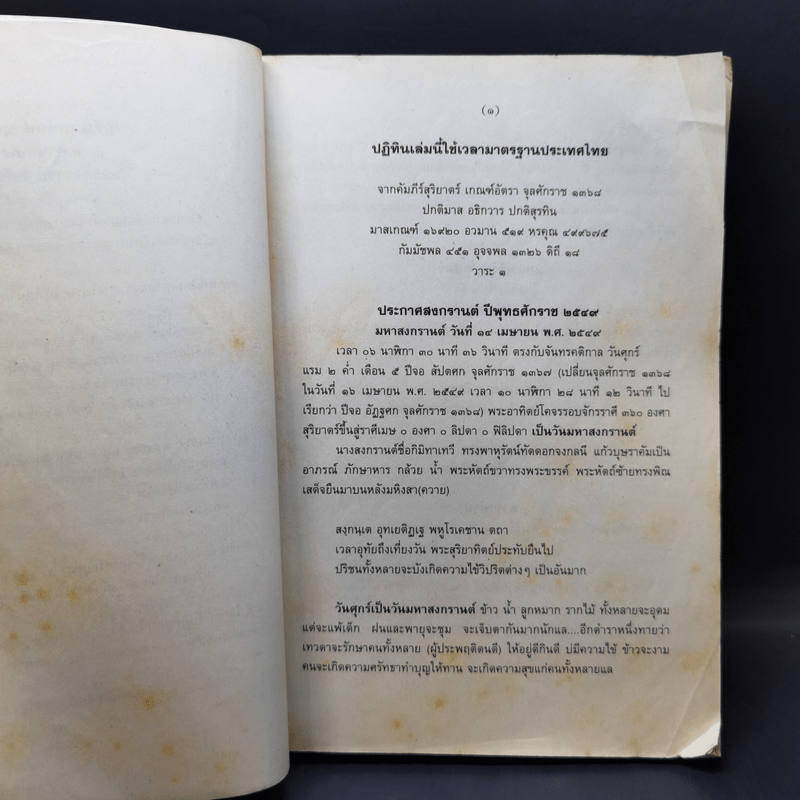 (๑)
ปฏิทินเล่มนี้ใช้เวลามาตรฐานประเทศไทย
จากคัมภีร์สุริยาตร์ เกณฑ์อัตรา จุลศักราช ๑๓๖๘
ปกติมาส อธิกวาร ปกติสุรทิน
มาสเกณฑ์ ๑๖๙๒๐ อวมาน ๕๑๙ หรคุณ ๔๙๙๖๗๕
กัมมัชพล ๔๕๑ อุจจพล ๑๓๒๖ ดิถี ๑๘
วาระ ๑
ประกาศสงกรานต์ ปีพุทธศักราช ๒๕๔๙
มหาสงกรานต์ วันที่ ๑๔ เมษายน พ.ศ. ๒๕๔๙
เวลา ๐๖ นาฬิกา ๓๐ นาที ๓๖ วินาที ตรงกับจันทรคติกาล วันศุกร์
แรม ๒ ค่ำ เดือน ๕ ปีจอ สัปตศก จุลศักราช ๑๓๖๗ (เปลี่ยนจุลศักราช ๑๓๖๘
ในวันที่ ๑๖ เมษายน พ.ศ. ๒๕๔๙ เวลา ๑๐ นาฬิกา ๒๘ นาที ๑๒ วินาที ไป
เรียกว่า ปีจอ อัฏฐศก จุลศักราช ๑๓๖๘) พระอาทิตย์โคจรรอบจักรราศี ๓๖๐ องศา
สุริยาตร์ขึ้นสู่ราศีเมษ ๐ องศา ๐ ลิปดา ๐ ฟิลิปดา เป็นวันมหาสงกรานต์
นางสงกรานต์ชื่อกิมิทาเทวี ทรงพาหุรัตน์ทัดดอกจงกลนี แก้วบุษราคัมเป็น
อาภรณ์ ภักษาหาร กล้วย น้ำ พระหัตถ์ขวาทรงพระขรรค์ พระหัตถ์ซ้ายทรงพิณ
เสด็จยืนมาบนหลังมหิงสา(ควาย)
สงฺกนฺเต อุทเยติฏฺเฐ พหูโรเคชาน ตถา
เวลาอุทัยถึงเที่ยงวัน พระสุริยาทิตย์ประทับยืนไป
ปริชนทั้งหลายจะบังเกิดความไข้วิปริตต่างๆ เป็นอันมาก
วันศุกร์เป็นวันมหาสงกรานต์ ข้าว น้ำ ลูกหมาก รากไม้ ทั้งหลายจะอุดม
แต่จะแพ้เด็ก ฝนและพายุจะชุม จะเจ็บตากันมากนักแล....อีกตำราหนึ่งทายว่า
เทวดาจะรักษาคนทั้งหลาย (ผู้ประพฤติตนดี) ให้อยู่ดีกินดี บ่มีความไข้ ข้าวจะงาม
คนจะเกิดความศรัทธาทำบุญให้ทาน จะเกิดความสุขแก่คนทั้งหลายแล